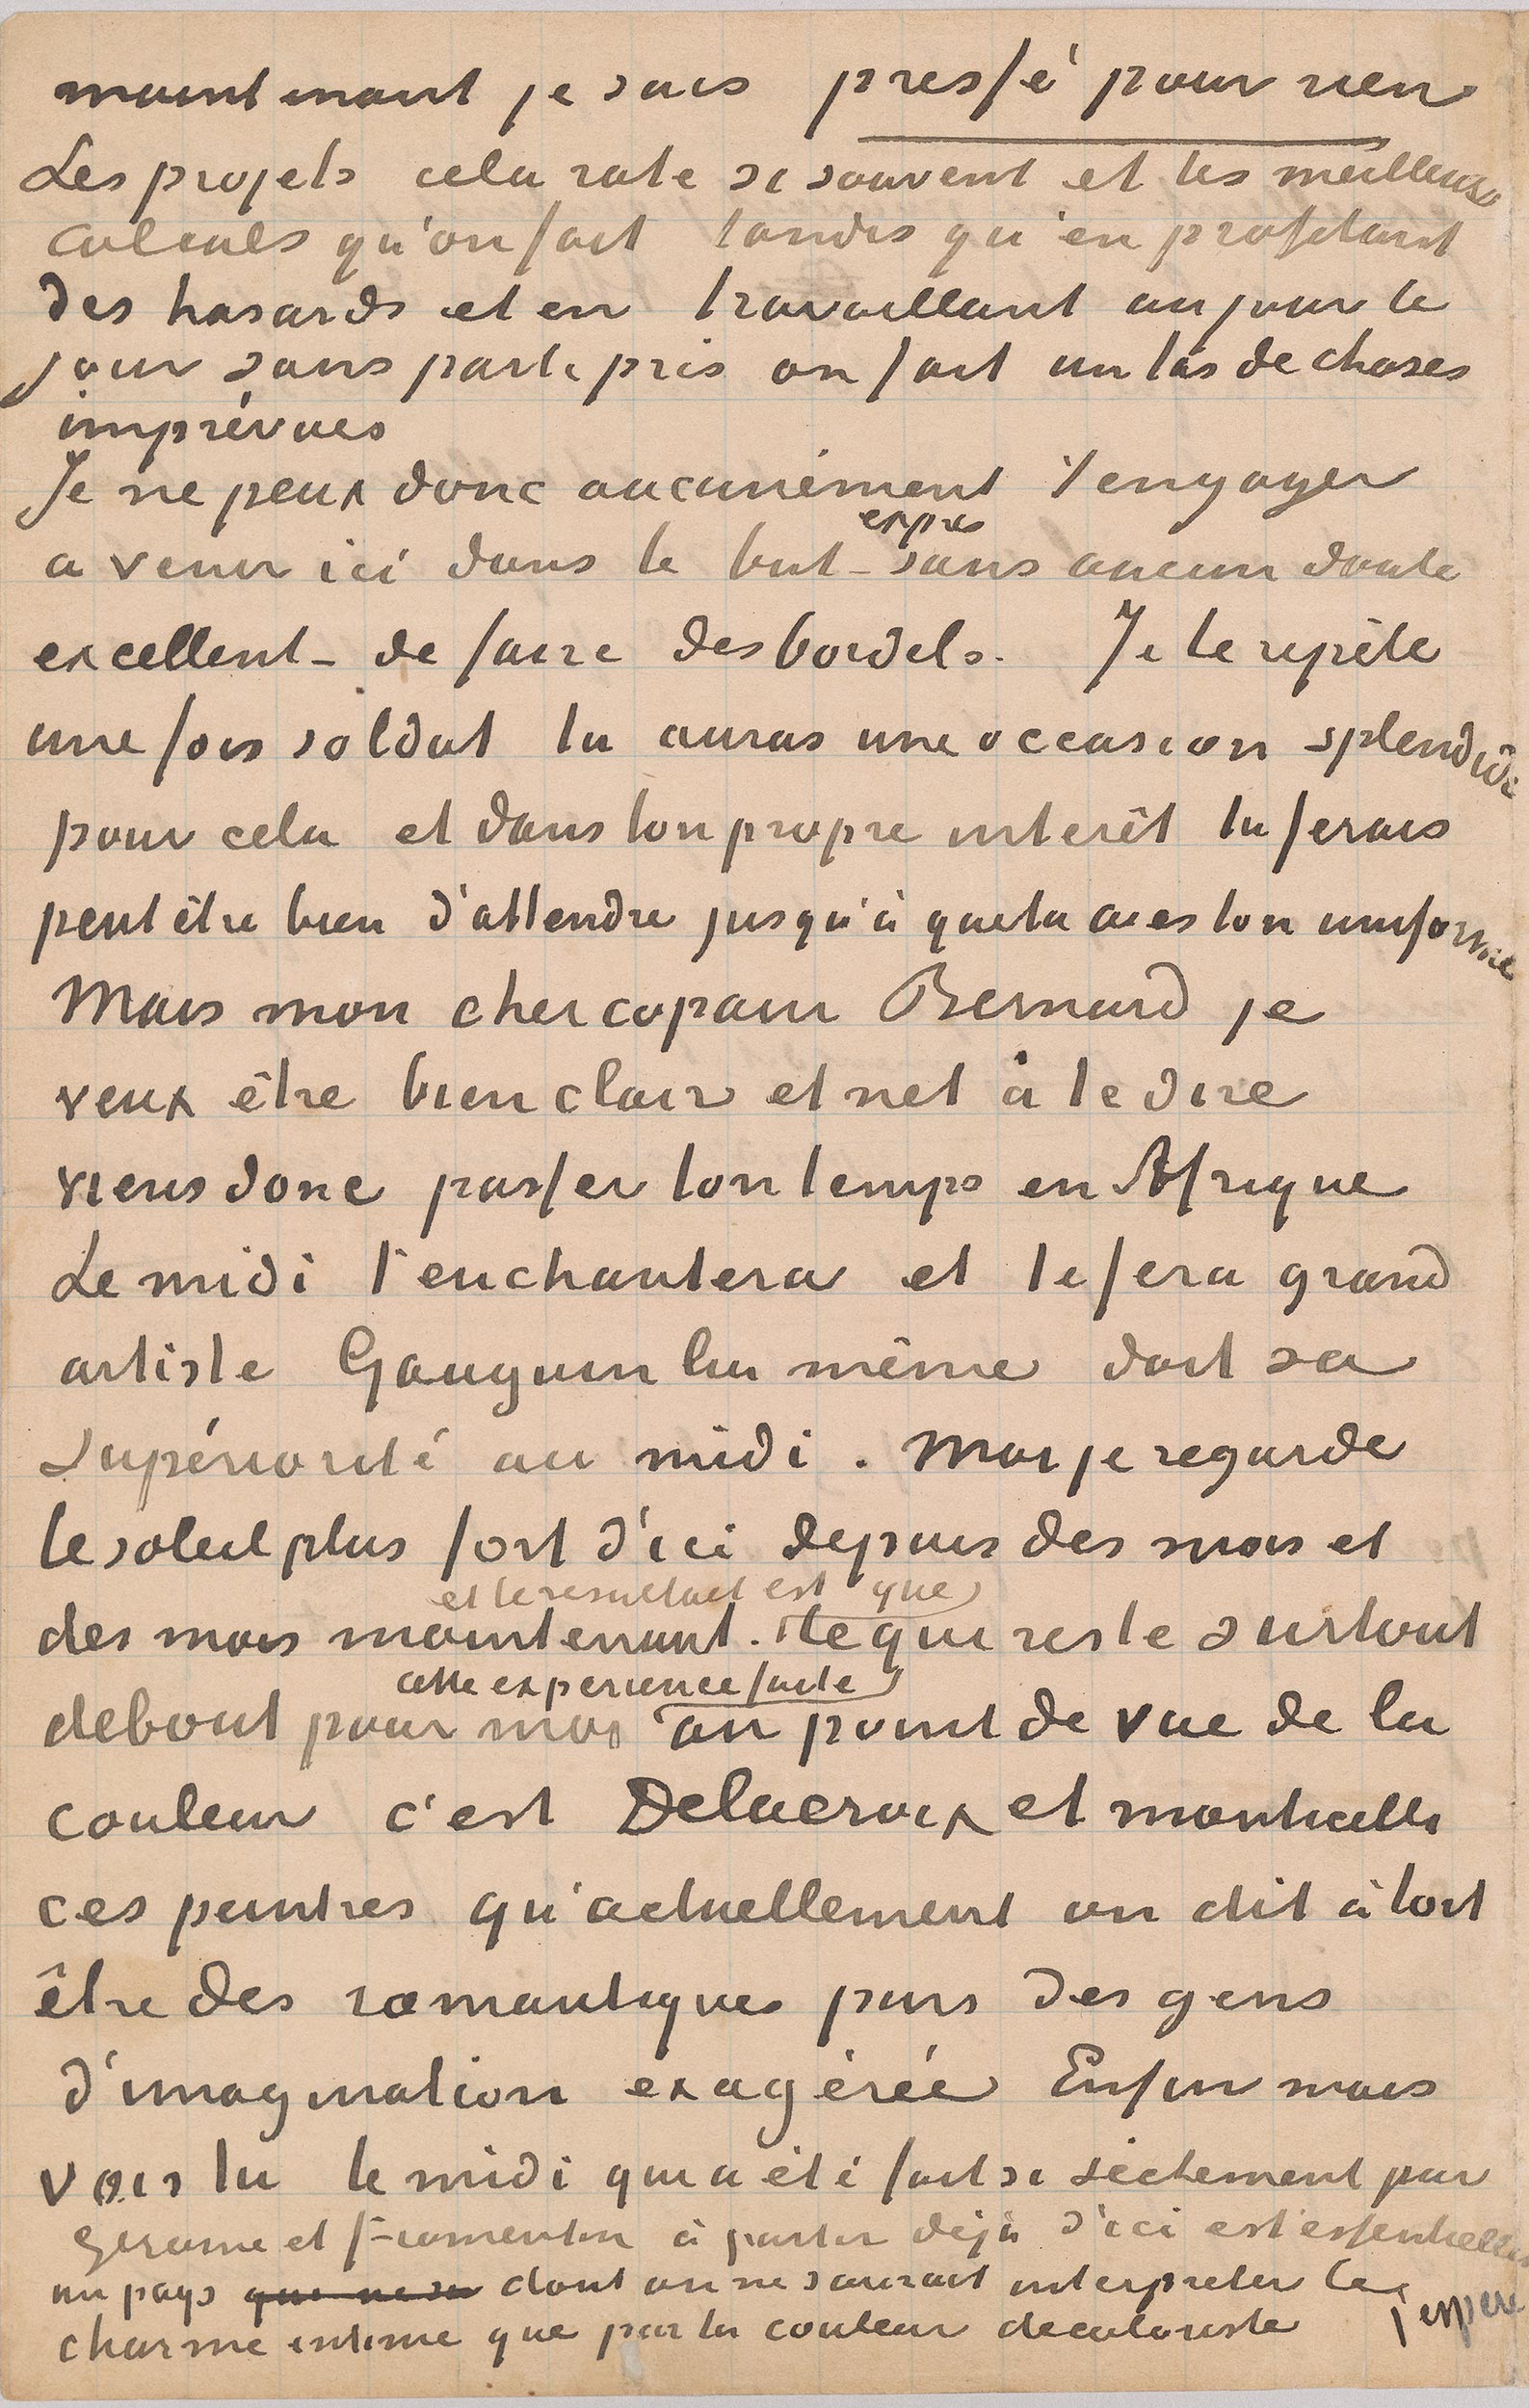 maintenant je suis pressé pour rien
Les projets cela rate si souvent et les meilleurs
calculs qu'on fait tandis qu'en profitant
des hasards et en travaillant au jour le
jour sans parti pris on fait un tas de choses
imprévues
Je ne peux donc aucunement t'engager
a venir ici dans le but expres - sans aucun doute
excellent - de faire des bordels. Je te repète
une fois soldat tu auras une occasion splendide
pour cela et dans ton propre interêt tu ferais
peut être bien d'attendre jusqu'à que tu aies ton uniforme
Mais mon cher copain Bernard je
veux être bien clair et net à te dire
viens donc passer ton temps en Afrique
Le midi t'enchantera et te fera grand
artiste Gauguin lui même doit sa
supériorité au midi. Moi je regarde
le soleil plus fort d'ici depuis des mois et
des mois maintenant. et le resultat est que
ce qui reste surtout
debout pour moi cette experience faite au point de vue de la
couleur c'est Delacroix et monticelli
ces peintres qu'actuellement on dit à tort
être des romantiques purs des gens
d'imagination exagérée Enfin mais
vois tu le midi qui a été fait si sèchement par
Gerome et Fromentin à partir déjà d'ici est essentiellem
un pays dont on ne saurait interpreter le
charme intime que par la couleur de coloriste j'espere